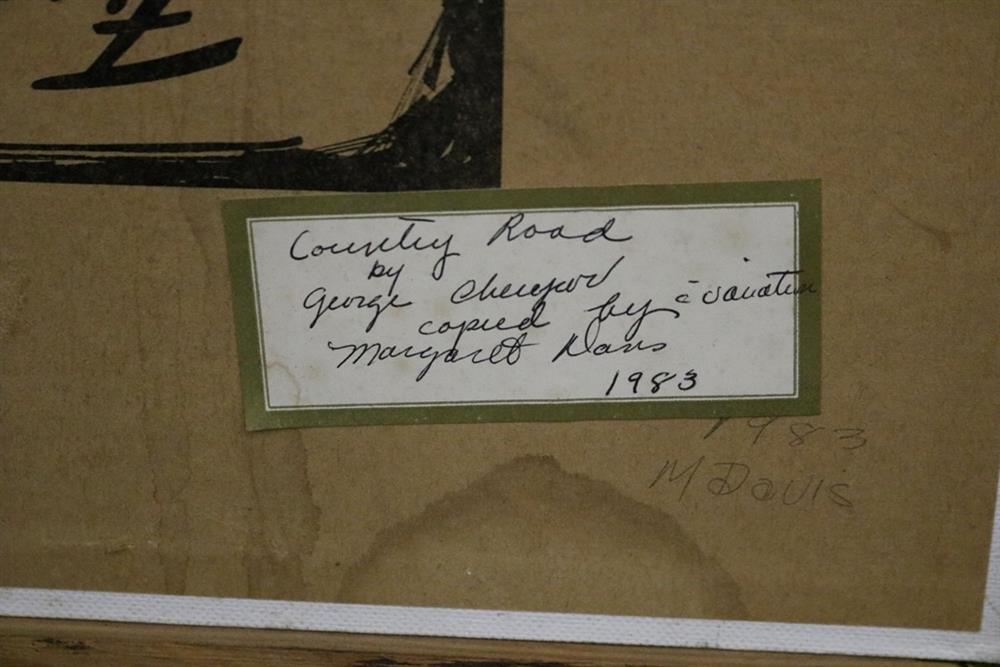 Country Road
by
George Cherepov
copied by c̄ variation
Margaret Davis
1983
1983
M Davis